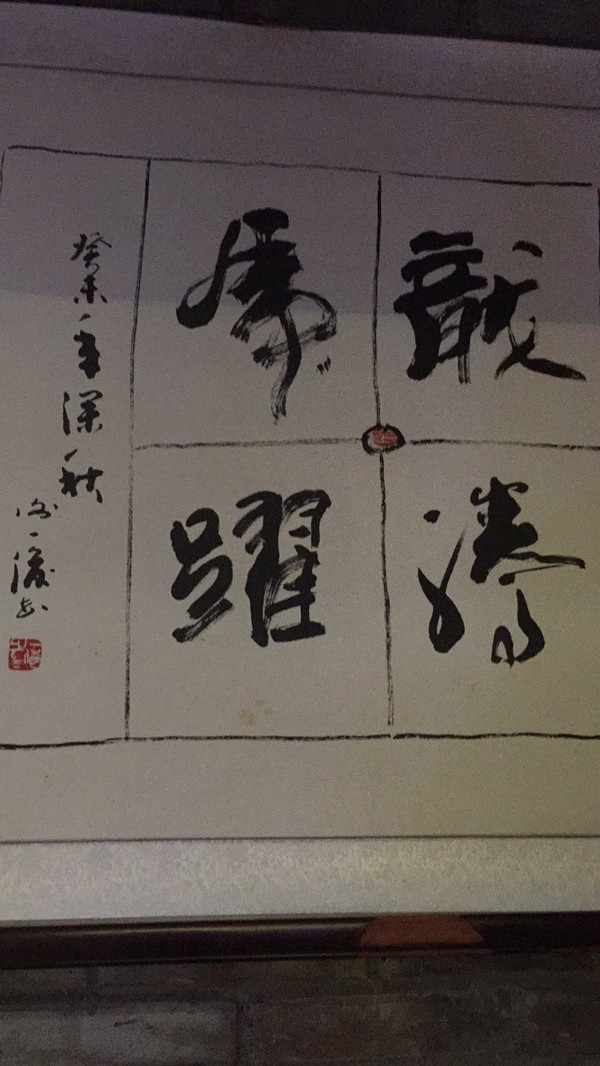 龍騰
虎躍
癸未年深秋